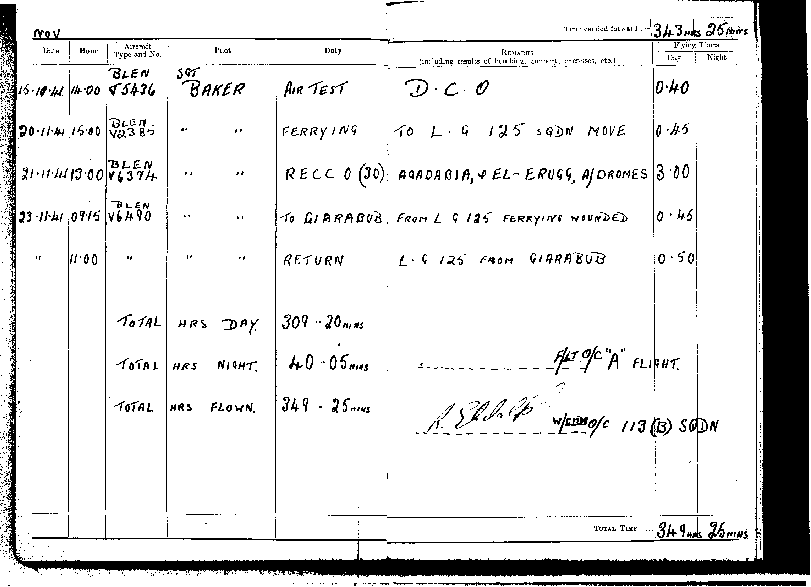 NOV
Time carried forward :— 343 HRS 25 MINS
Date Hour Aircraft Type and No. Pilot Duty REMARKS (including results of bombing, gunnery, exercises, etc.) Flying Times Day Night
15-10-41 14.00 BLEN T5436 SGT BAKER AIR TEST D.C.O 0.40
20-11-41 15.00 BLEN. V2385 " " FERRYING TO L.G 125 SQDN MOVE 0.45
21-11-41 13.00 BLEN V6374 " " RECCO (30) AGADABIA, & EL-ERUGG, A/DROMES 3.00
23-11-41 09.15 BLEN V6490 " " TO GIARABUB. FROM L G 125 FERRYING WOUNDED 0.45
" 11.00 " " " RETURN L.G 125 FROM GIARABUB 0.50
TOTAL HRS DAY. 309-20 MINS
TOTAL HRS NIGHT. 40-05 MINS F/LT O/C "A" FLIGHT.
TOTAL HRS FLOWN. 349-25 MINS W/CDR O/C 113(B) SQDN
TOTAL TIME 349 HRS 25 MINS